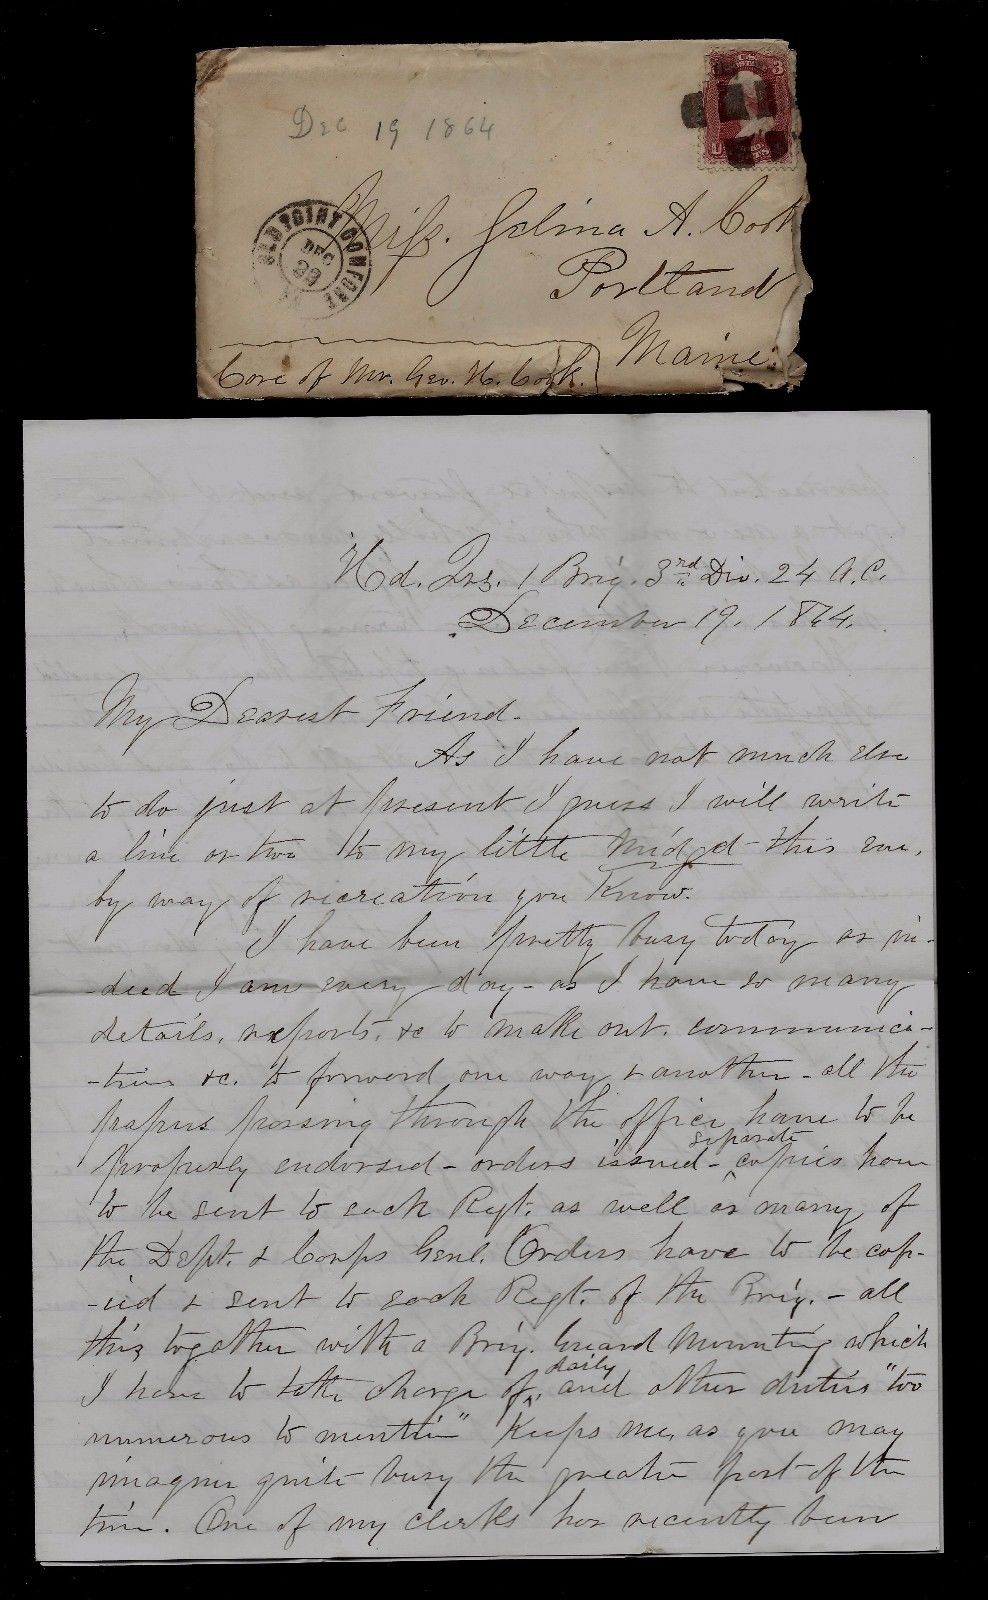 Dec 19 1864
U.S. 3
OLD POINT COMFORT
DEC
23
Miss. Selina A. Cook
Portland
Maine.
Care of Mr. Geo. H. Cook.
Hd. Qrs. 1 Brig. 3rd Div. 24 A.C.
December 19. 1864.
My Dearest Friend-
As I have not much else
to do just at present I guess I will write
a line or two to my little Midget this eve,
by way of recreation you know.
I have been pretty busy today as in-
-deed I am every day - as I have so many
details, reports, &c to make out, communica-
-tions &c. to forward one way & another - all the
papers passing through the office have to be
properly endorsed - orders issued - separate copies have
to be sent to each Regt. as well as many of
the Dept. & Corps Genl. Orders have to be cop-
-ied & sent to each Regt. of the Brig. - all
this together with a Brig. Guard Mounting which
I have to take charge of, daily and other duties "too
numerous to mention" keeps me, as you may
imagine quite busy the greater part of the
time. One of my clerks has recently been